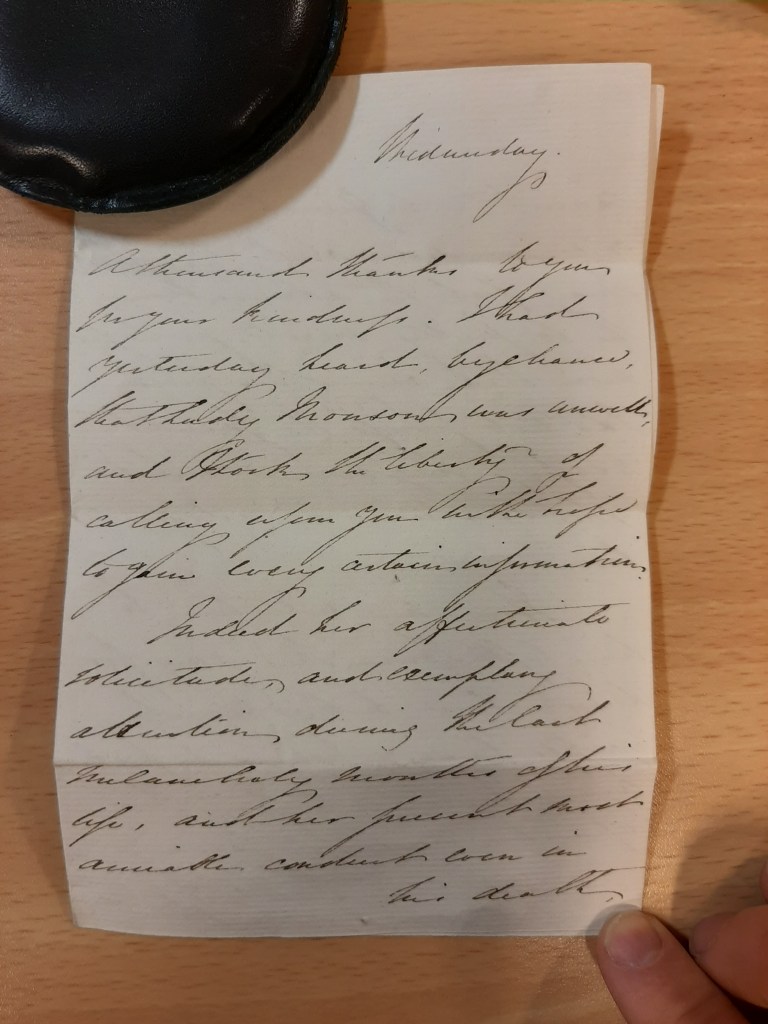 Wednesday.
A thousand thanks to you
for your kindness. I had
yesterday heard, by chance,
that Lady Monson was unwell,
and I took the liberty of
calling upon you in the hope
to gain every certain information.
Indeed her affectionate
solicitude, and exemplary
attention during the last
melancholy months of his
life, and her present most
amiable conduct even in
his death,